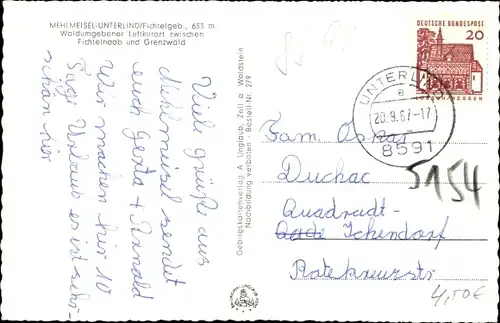 MEHLMEISEL-UNTERLIND/Fichtelgeb., 633 m
Waldumgebener Luftkurort zwischen
Fichtelnaab und Grenzwald
Viele grüße aus
Mehlmeisel sendet
euch Gerta + Arnold
Wir machen hir 10
Tage Urlaub es ist sehr
schön hir
Gebirgskartenverlag A. Unglaub, Zell a. Waldstein
Nachbildung verboten - Bestell Nr. 279
DEUTSCHE BUNDESPOST
20
UNTERLIND
a
20.9.67-17
8591
Fam. Oskar
Duchac
5154
Quadradt-
Ichendorf
Rotekreuzstr
4,50€